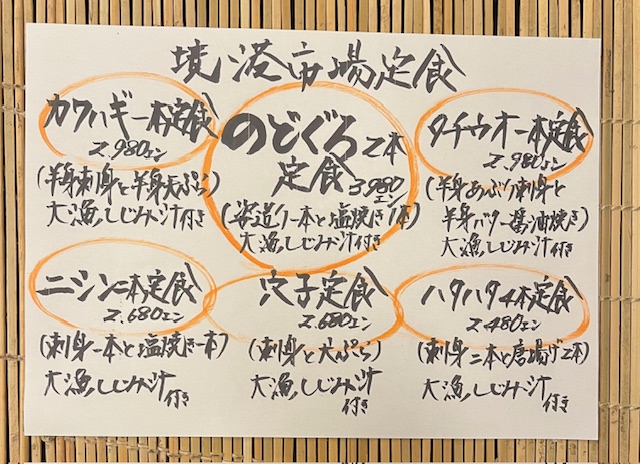 境港市場定食
カワハギ一本定食
2.980エン
(半身刺身と半身天ぷら)
大漁しじみ汁付き
のどぐろ2本
定食
3.980
エン
(姿造り一本と塩焼き1本)
大漁しじみ汁付き
タチウオ一本定食
2.980エン
(半身あぶり刺身と
半身バター醤油焼き)
大漁しじみ汁付き
ニシン二本定食
2.680エン
(刺身一本と塩焼き一本)
大漁しじみ汁
付き
穴子定食
2.680エン
(刺身と天ぷら)
大漁しじみ汁
付き
ハタハタ4本定食
2.480エン
(刺身二本と唐揚げ2本)
大漁しじみ汁
付き